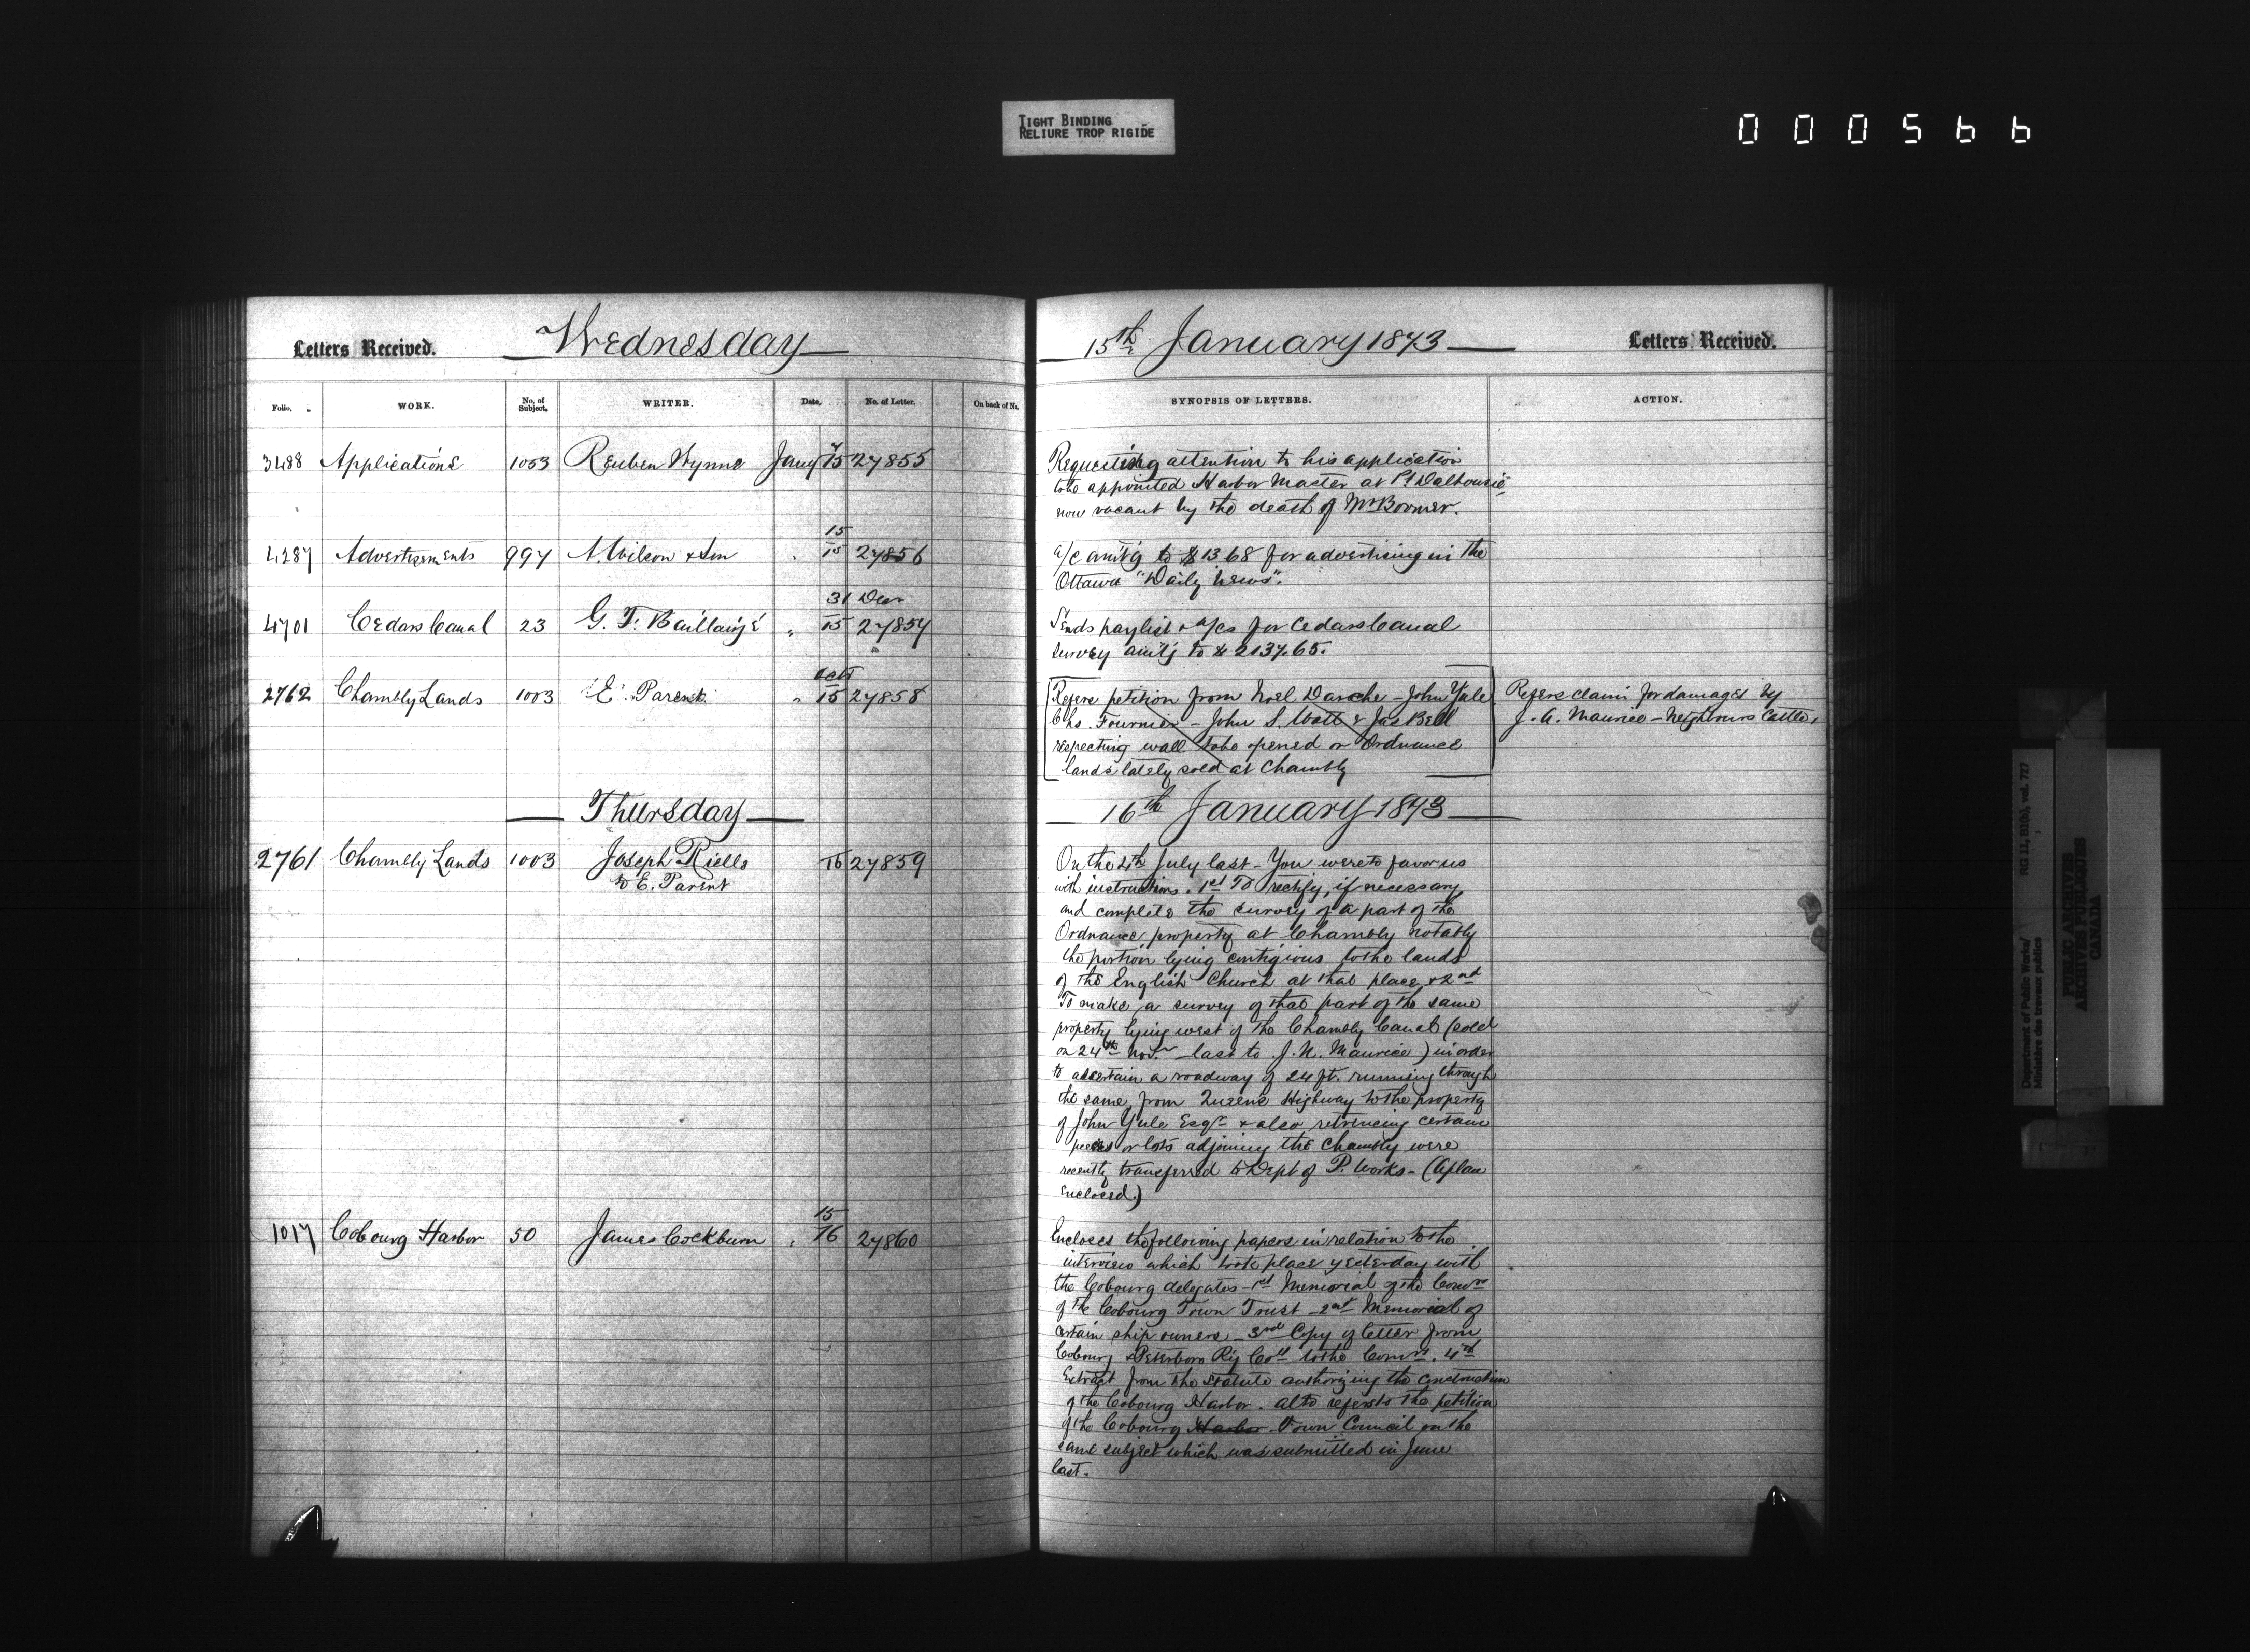 TIGHT BINDING
RELIURE TROP RIGIDE
000566
Letters Received.
Wednesday
Folio.
WORK.
No. of Subject.
WRITER.
Date.
No. of Letter.
On back of No.
3488 Applications 1053 Reuben Wynne Jany 7/15 27855
4287 Advertisements 997 A. Wilson & Son " 15/15 27856
4701 Cedars Canal 23 G. F. Baillairgé " 31 Decr/15 27857
2762 Chambly Lands 1003 E. Parent " Oct/15 27858
Thursday
2761 Chambly Lands 1003 Joseph Riella 16 27859
to E. Parent
1017 Cobourg Harbor 50 James Cockburn " 15/16 27860
15th January 1873
Letters Received.
SYNOPSIS OF LETTERS.
ACTION.
Requesting attention to his application
to be appointed Harbor Master at Pt Dalhousie
now vacant by the death of Mr Boomer.
a/c amt'g to $13.68 for advertising in the
Ottawa "Daily News".
Sends paylist & a/cs for Cedars Canal
survey amt'g to $2137.65.
Refers petition from Noel Darche - John Yule
Chs. Fournier - John S. Watt & Jas Bell
respecting wall to be opened on Ordnance
lands lately sold at Chambly
Refers claim for damages by
J. A. Maurice - Neighbours Cattle,
16th January 1873
On the 4th July last - You were to favor us
with instructions. 1st To rectify, if necessary,
and complete the survey of a part of the
Ordnance property at Chambly notably
the portion lying contigious to the lands
of the English Church at that place & 2nd
To make a survey of that part of the same
property lying west of the Chambly Canal (sold
on 24th Novr last to J. N. Maurice) in order
to ascertain a roadway of 24 ft. running through
the same, from Queen's Highway to the property
of John Yule Esqr & also certain
pieces or lots adjoining the Chambly were
recently transferred to Dept of P. Works - (A plan
enclosed.)
Encloses the following papers in relation to the
interview which took place yesterday with
the Cobourg delegates - 1st Memorial of the Comrs
of the Cobourg Town Trust - 2nd Memorial of
certain ship owners - 3rd Copy of letter from
Cobourg & Peterboro Ry Coy to the Comrs. 4th
Extract from the Statute authorizing the construction
of the Cobourg Harbor. also refers to the petition
of the Cobourg Harbor Town Council on the
same subject which was submitted in June
last.
Department of Public Works/
Ministère des travaux publics
RG 11, B1(b), vol. 727
PUBLIC ARCHIVES
ARCHIVES PUBLIQUES
CANADA